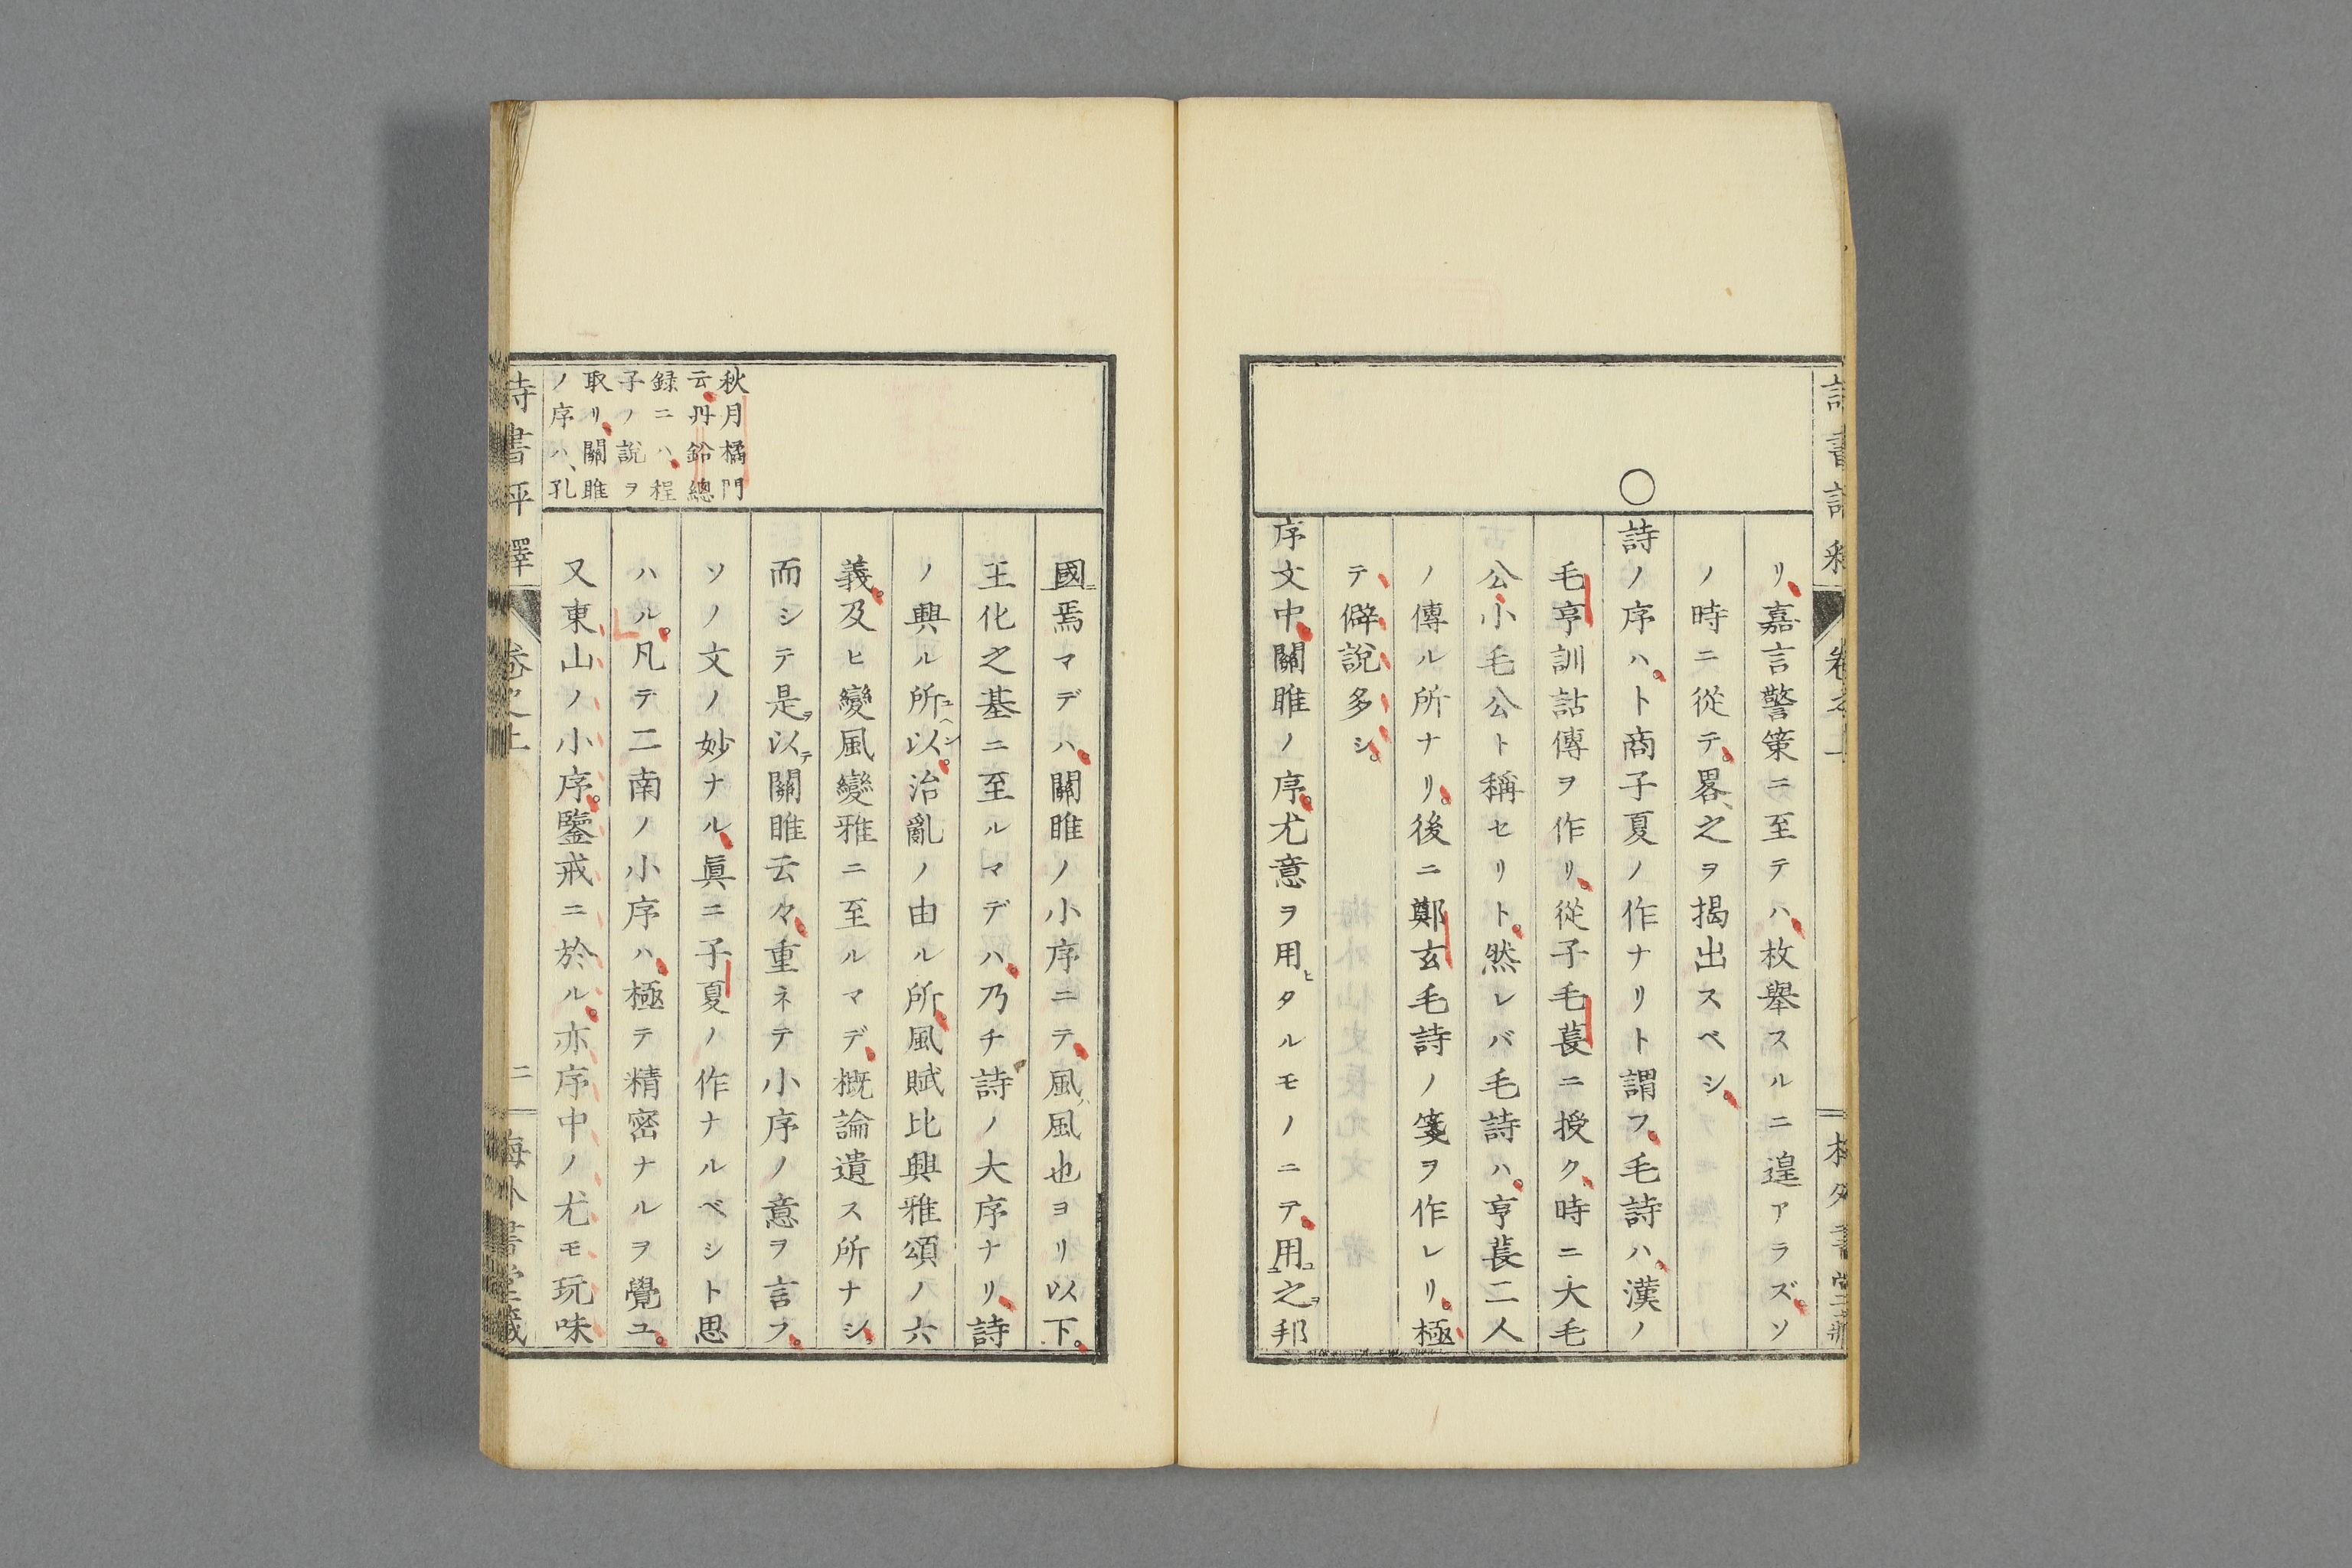 リ、嘉言警策ニ至テハ、枚舉スルニ遑アラズ。ソ
ノ時ニ從テ、畧、之ヲ揭出スベシ、
○
詩ノ序ハ。卜商子夏ノ作ナリト謂フ。毛詩ハ、漢ノ
毛亨訓詁傳ヲ作リ。從子毛萇ニ授ク、時ニ大毛
公小毛公ト稱セリト。然レバ毛詩ハ。亨萇二人
ノ傳ル所ナリ。後ニ鄭玄毛詩ノ箋ヲ作レリ。極
テ僻說多シ。
序文中關雎ノ序。尤意ヲ用ヒタルモノニテ、用ユ之ヲ邦
國ニ焉マデハ、關雎ノ小序ニテ、風ハ風也ヨリ以下。
王化之基ニ至ルマデハ。乃チ詩ノ大序ナリ、詩
ノ興ル所以ユヘン。治亂ノ由ル所、風賦比興雅頌ノ六
義。及ヒ變風變雅ニ至ルマデ、概論遺ス所ナシ、
而シテ是ヲ以テ關雎云々、重ネテ小序ノ意ヲ言フ。
ソノ文ノ妙ナル、眞ニ子夏ノ作ナルベシト思
ハル。凡テ二南ノ小序ハ、極テ精密ナルヲ覺ユ。
又東山ノ小序。鑒戒ニ於ル。亦序中ノ尤モ玩味
秋月橘門
云、丹鉛總
録ニハ、程
子ノ說ヲ
取リ、關雎
ノ序ハ、孔
詩書評釋
卷之上
二
梅外書堂藏